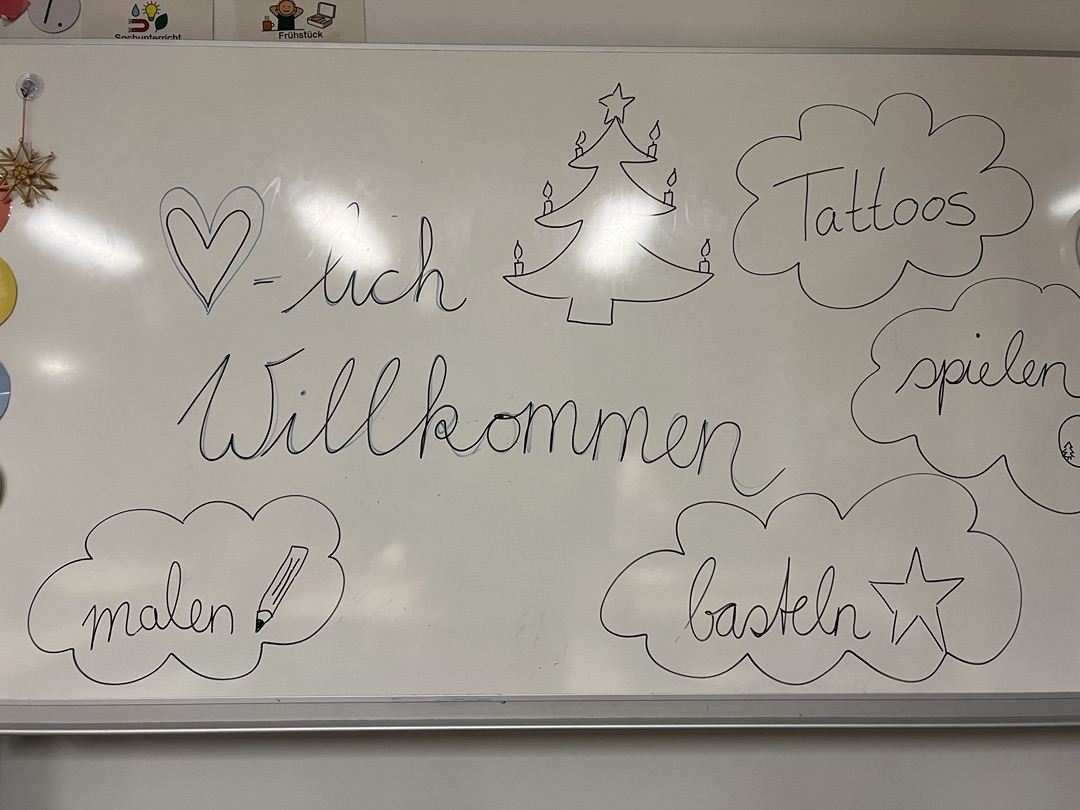 1.
Sachunterricht
Frühstück
-lich
Willkommen
Tattoos
spielen
malen
basteln